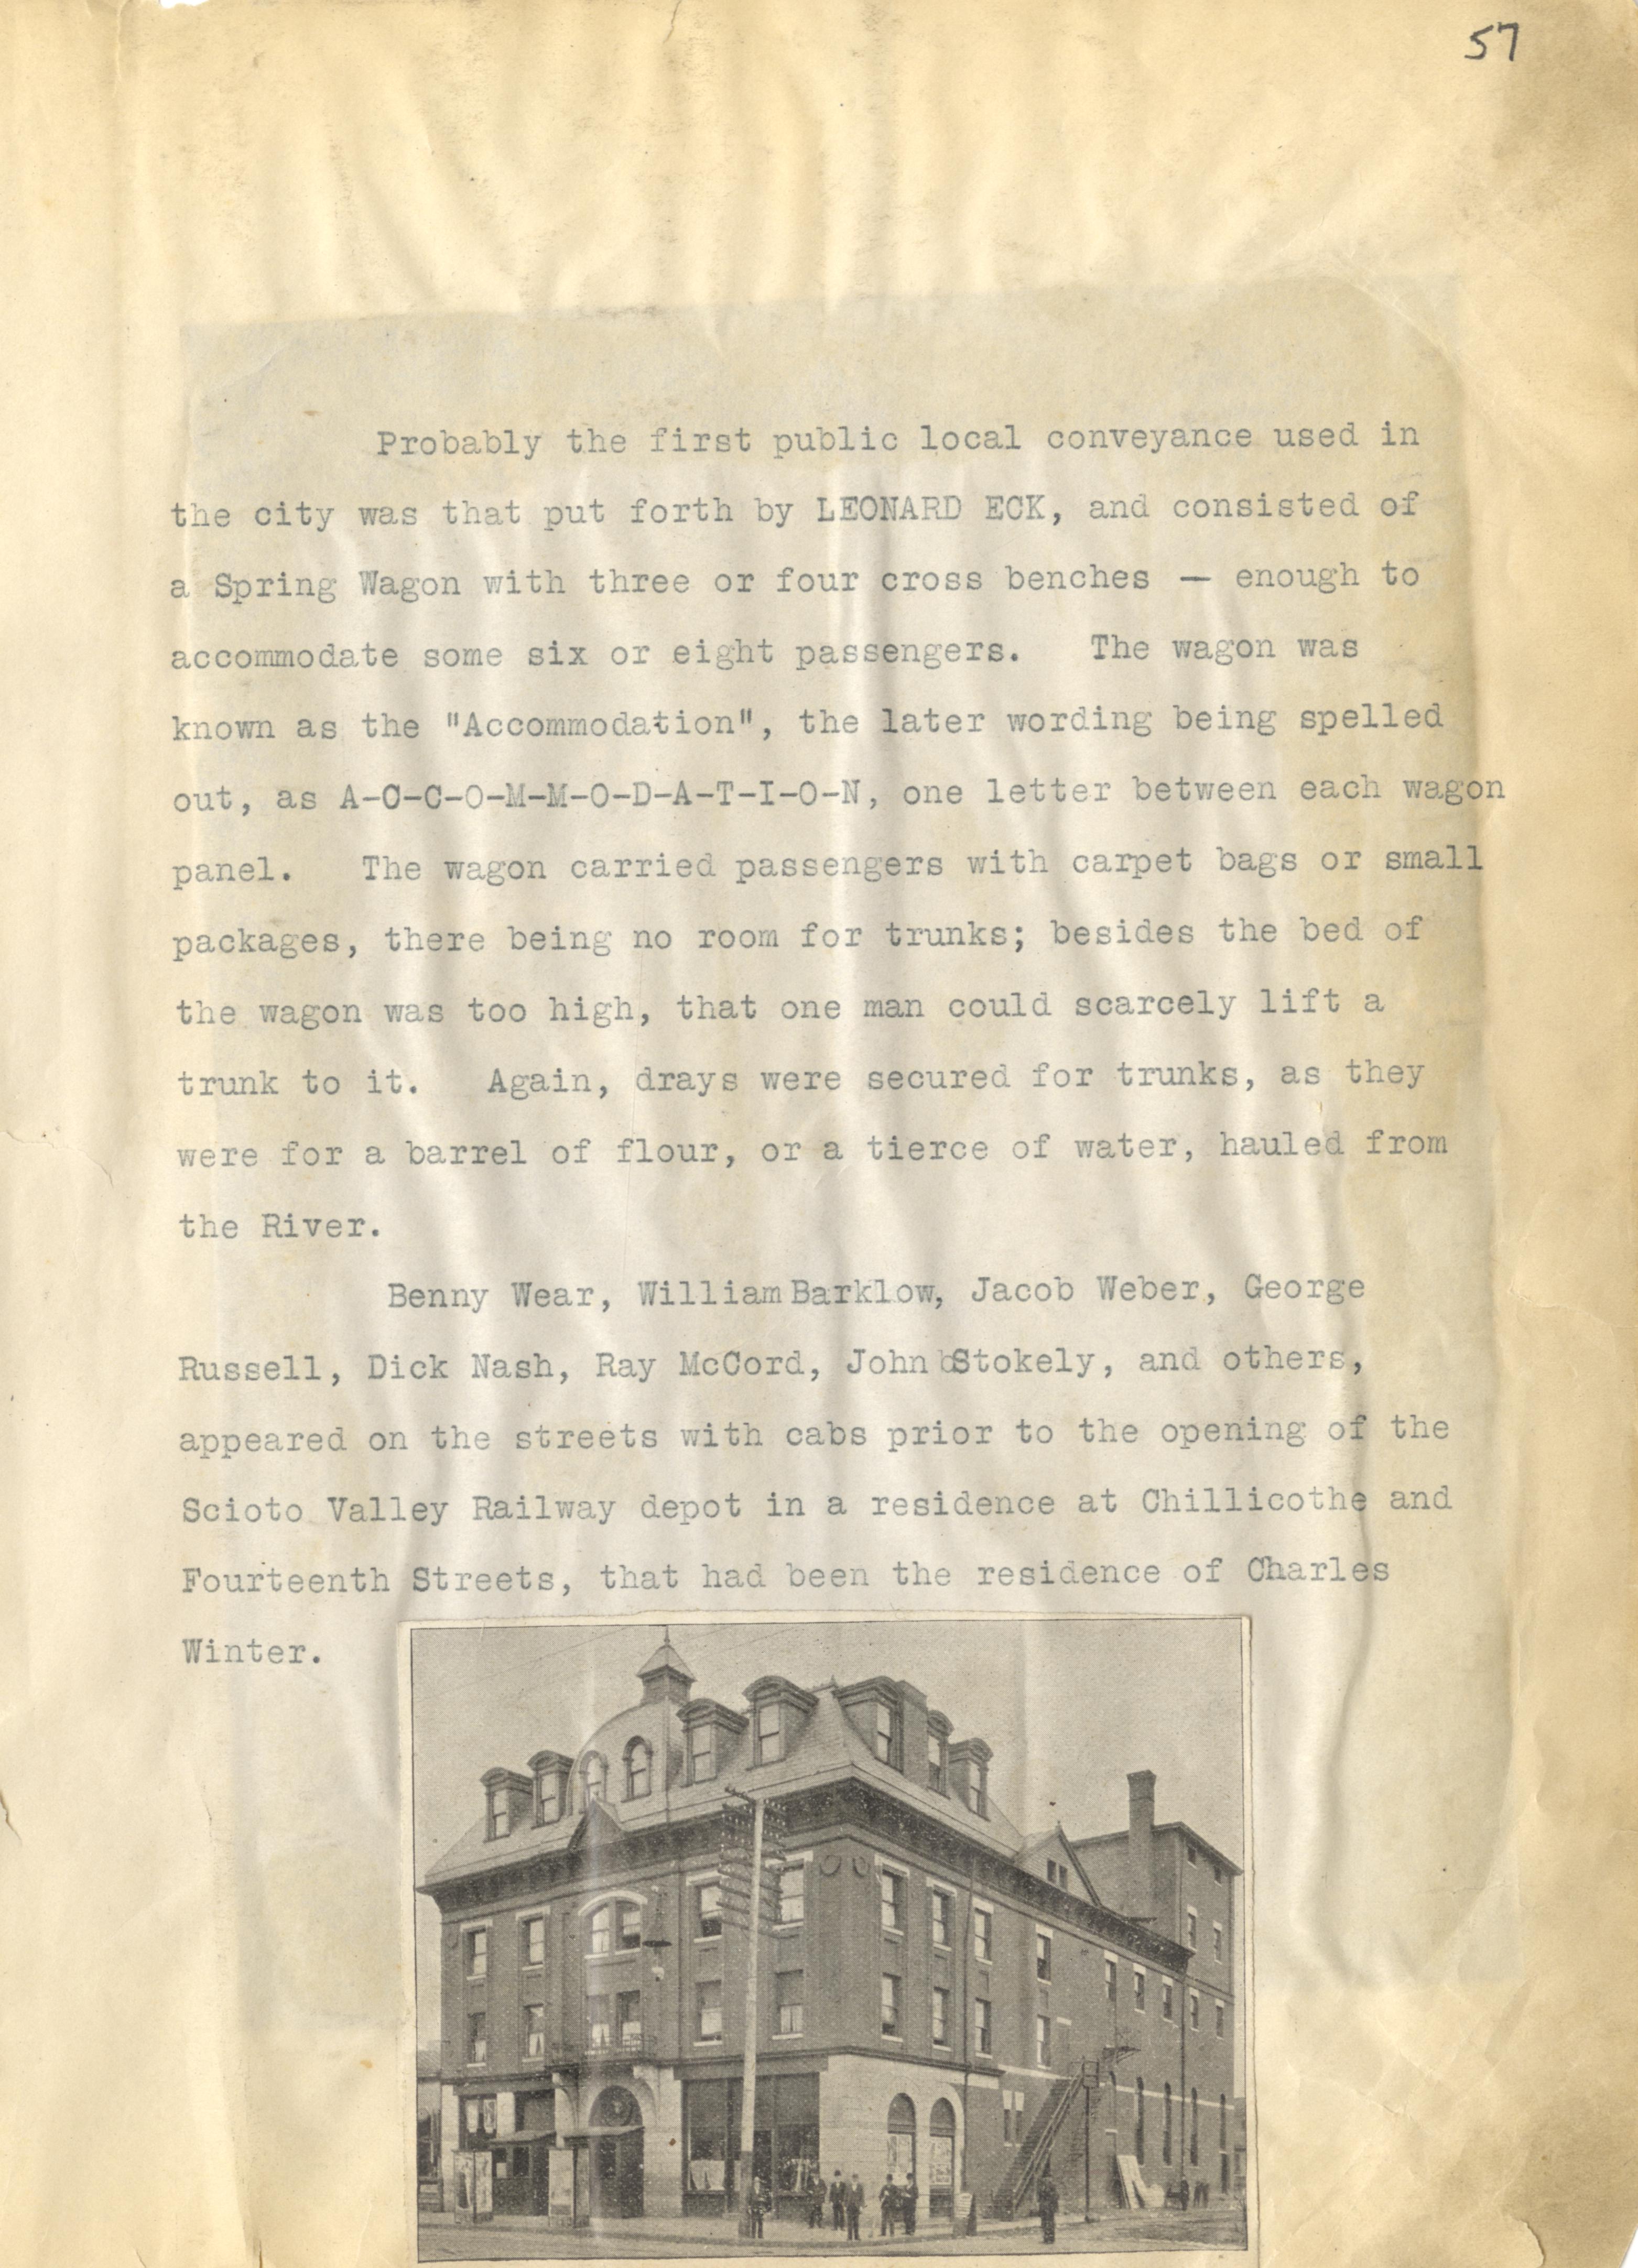 57
Probably the first public local conveyance used in
the city was that put forth by LEONARD ECK, and consisted of
a Spring Wagon with three or four cross benches — enough to
accommodate some six or eight passengers. The wagon was
known as the "Accommodation", the later wording being spelled
out, as A-C-C-O-M-M-O-D-A-T-I-O-N, one letter between each wagon
panel. The wagon carried passengers with carpet bags or small
packages, there being no room for trunks; besides the bed of
the wagon was too high, that one man could scarcely lift a
trunk to it. Again, drays were secured for trunks, as they
were for a barrel of flour, or a tierce of water, hauled from
the River.
Benny Wear, William Barklow, Jacob Weber, George
Russell, Dick Nash, Ray McCord, John Stokely, and others,
appeared on the streets with cabs prior to the opening of the
Scioto Valley Railway depot in a residence at Chillicothe and
Fourteenth Streets, that had been the residence of Charles
Winter.